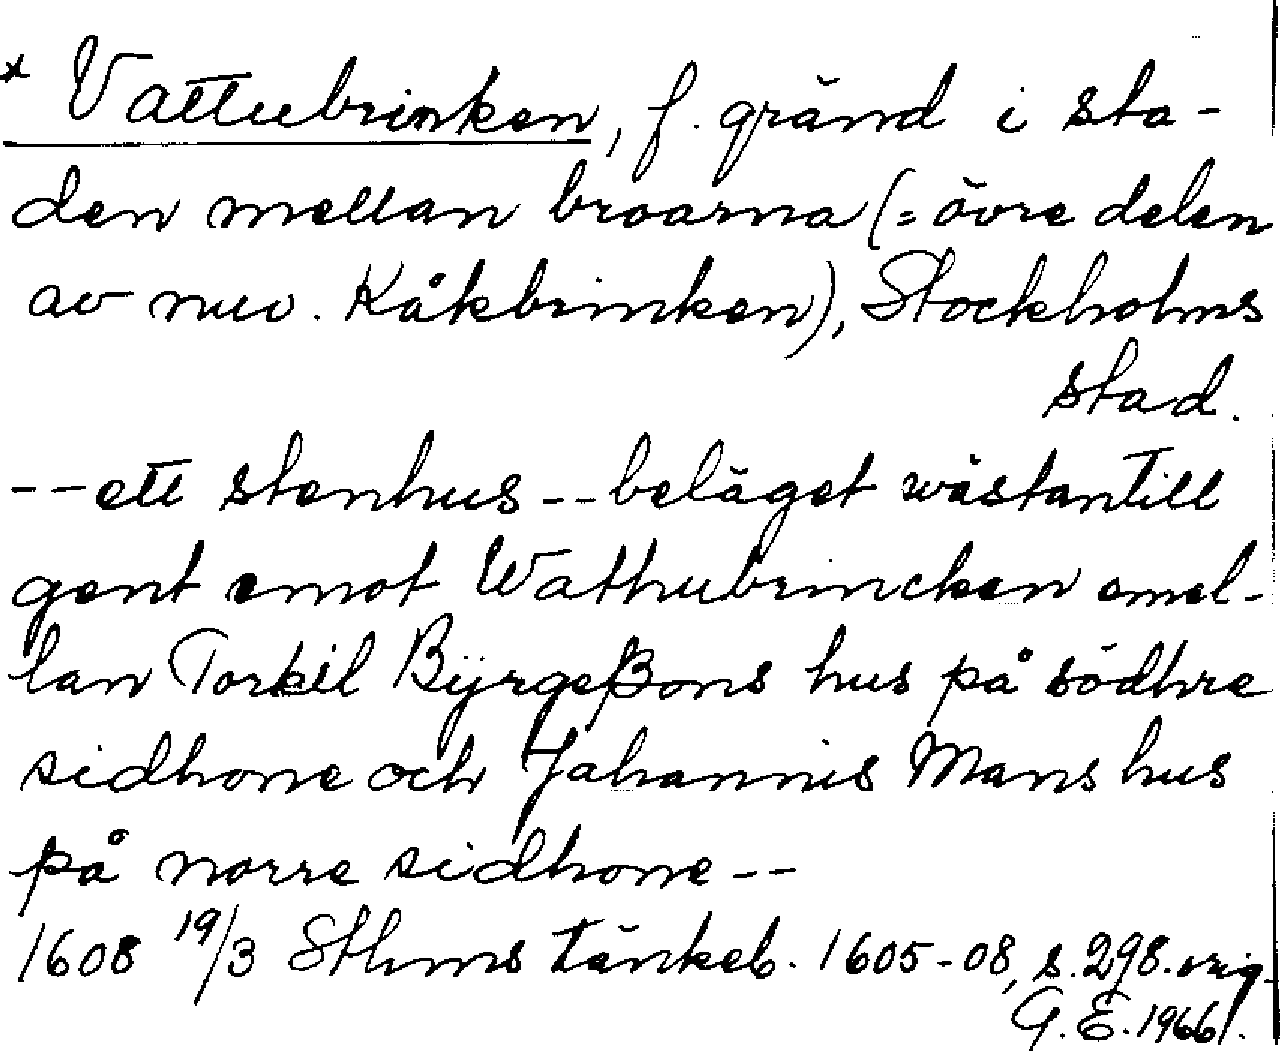 * Vattubrinken, f. gränd i sta-
den mellan broarna (= övre delen
av nuv. Kåkbrinken), Stockholms
stad.
-- ett stenhus -- beläget wästantill
gent emot Wathubrincken emel-
lan Torkil Byrgeßons hus på södhre
sidhone och Johannis Mans hus
på norre sidhone --
1608 19/3 Sthms tänkeb. 1605-08, s. 298. orig.
G.E. 1966.